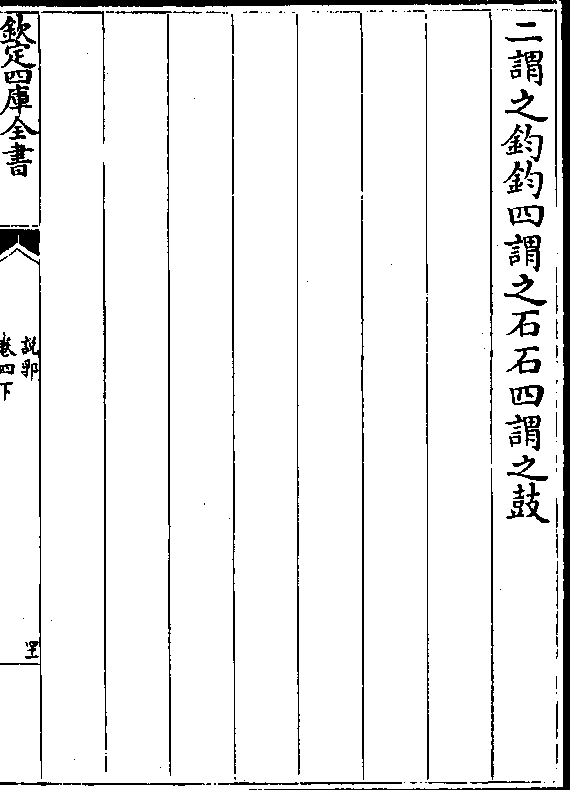 二謂之鈞鈞四謂之石石四謂之鼓
欽定四庫全書
說郛
卷四下